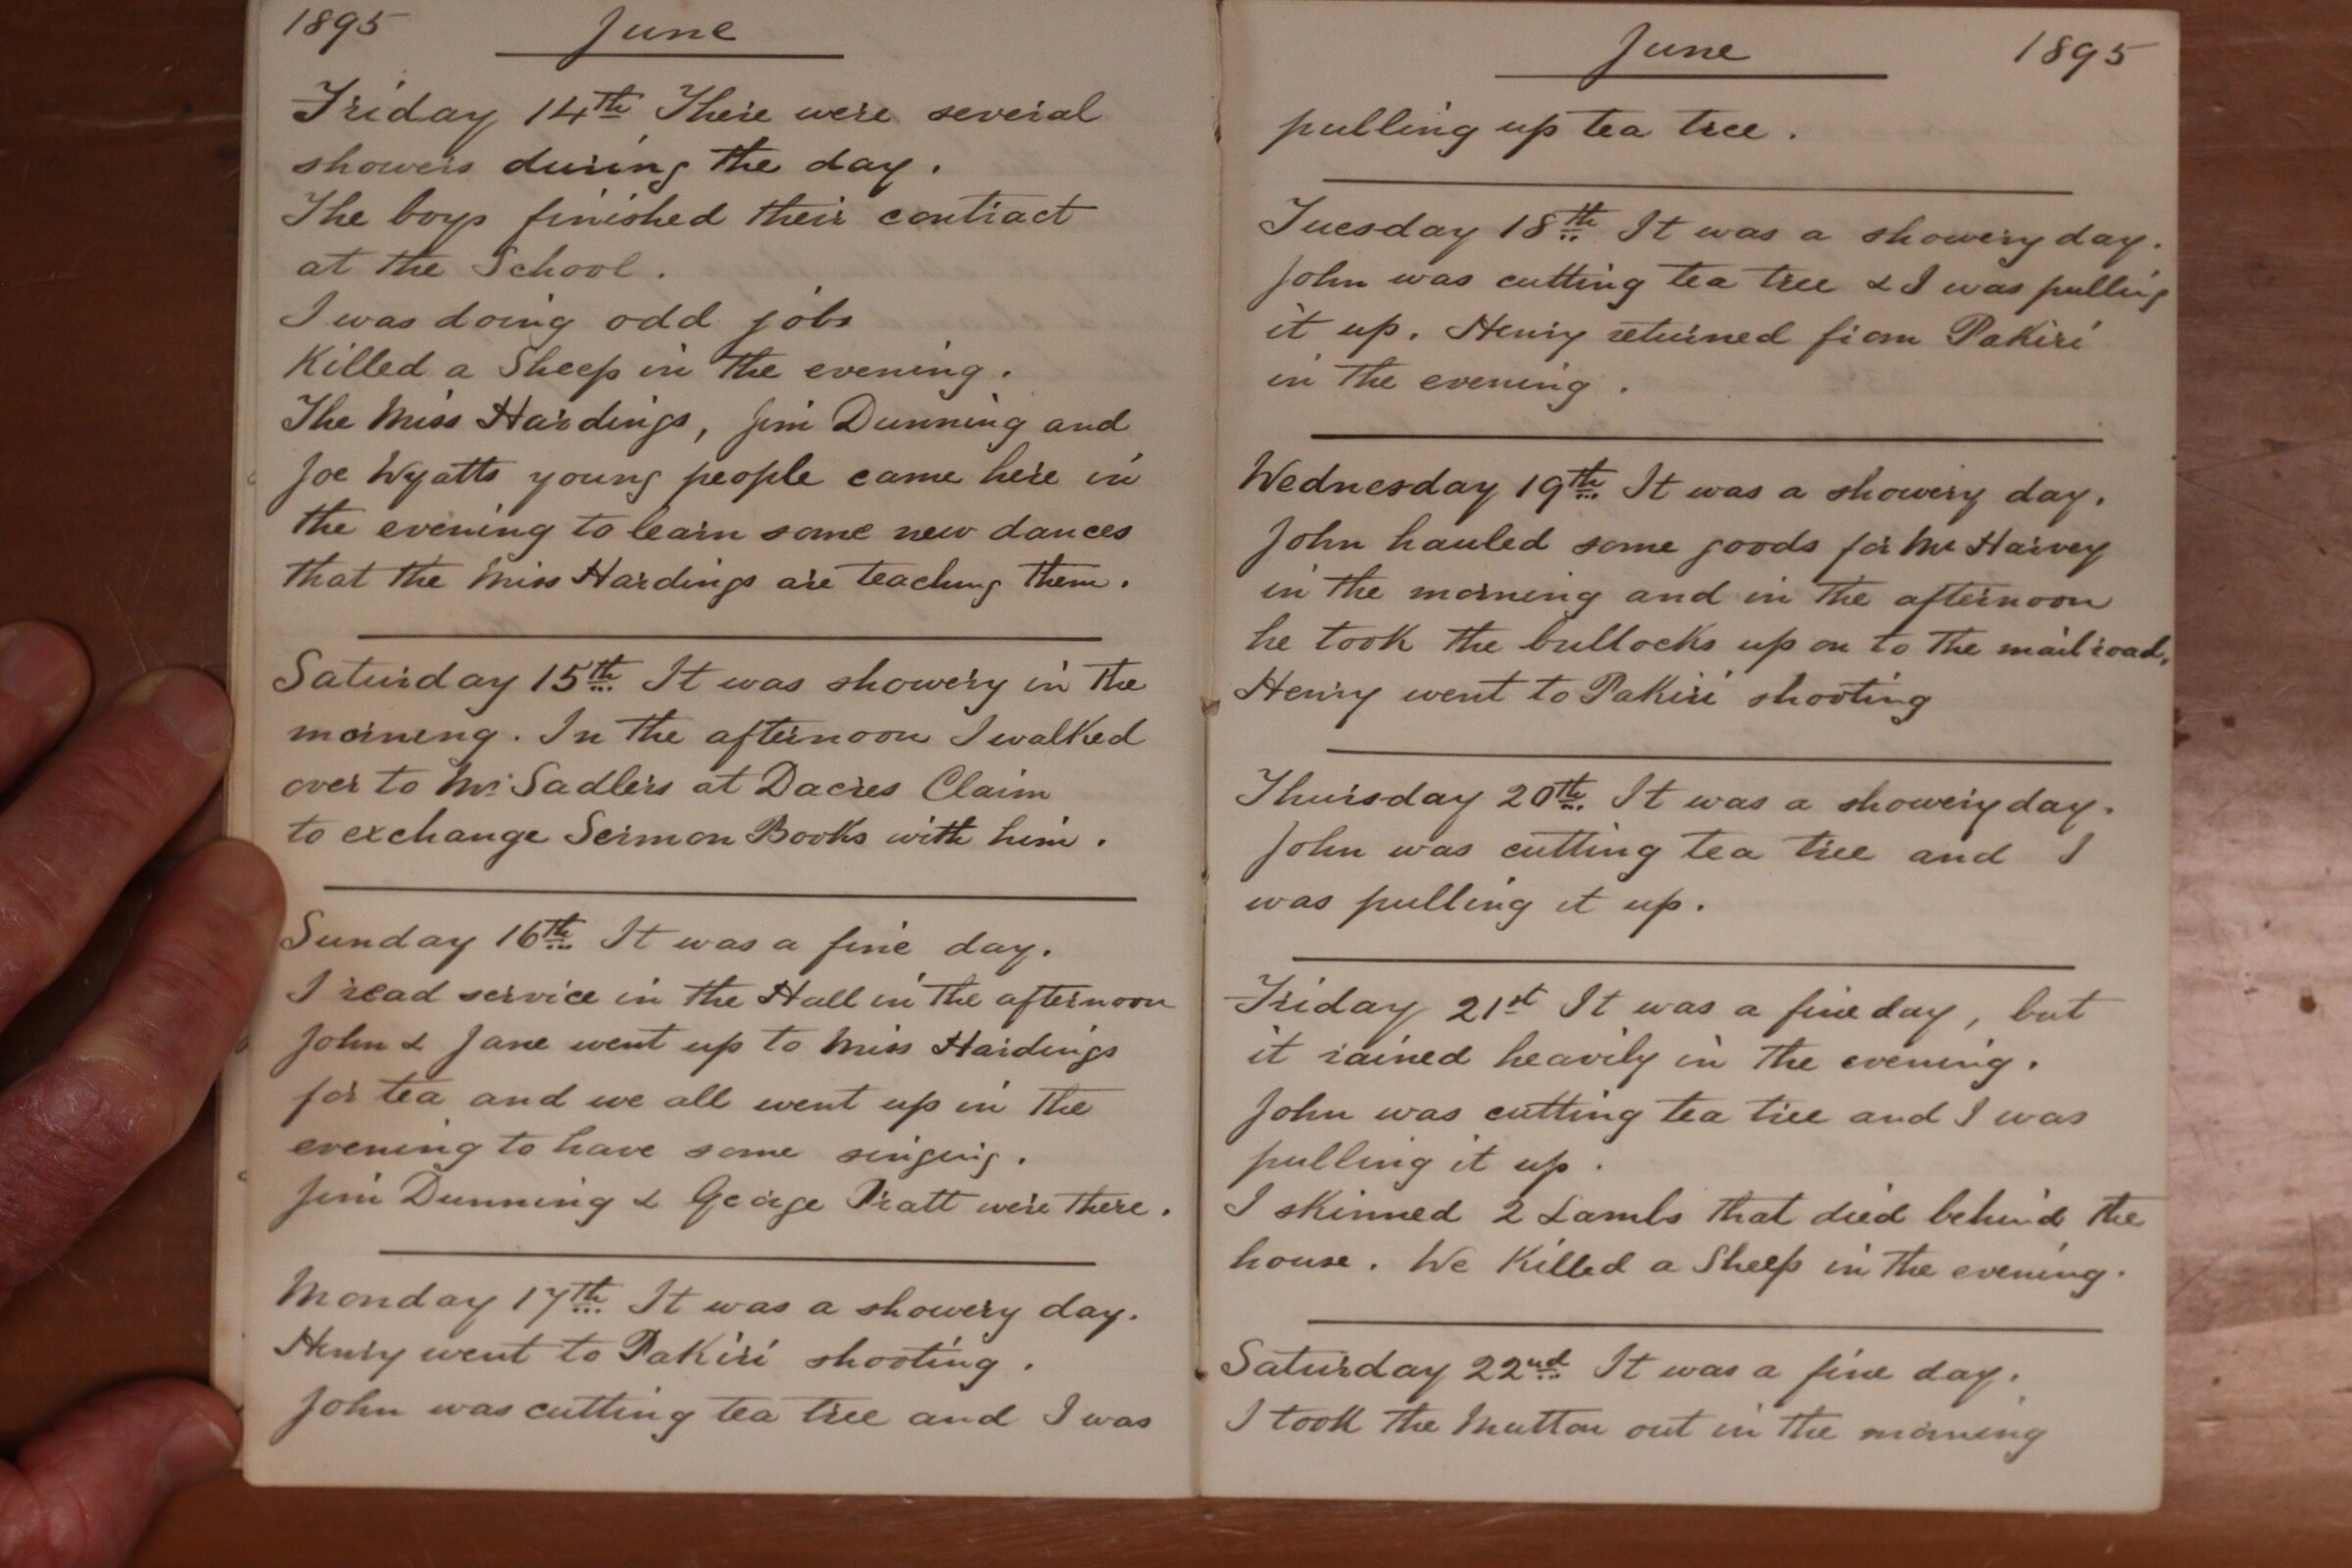 1895 June
Friday 14th There were several
showers during the day.
The boys finished their contract
at the School.
I was doing odd jobs
Killed a Sheep in the evening.
The Miss Hardings, Jim Dunning and
Joe Wyatts young people came here in
the evening to learn some new dances
that the Miss Hardings are teaching them.
Saturday 15th It was showery in the
morning. In the afternoon I walked
over to Mr Sadlers at Dacres Claim
to exchange Sermon Books with him.
Sunday 16th It was a fine day.
I read service in the Hall in the afternoon
John & Jane went up to Miss Hardings
for tea and we all went up in the
evening to have some singing.
Jim Dunning & George Pratt were there.
Monday 17th It was a showery day.
Henry went to Pakiri shooting.
John was cutting tea tree and I was
June 1895
pulling up tea tree.
Tuesday 18th It was a showery day.
John was cutting tea tree & I was pulling
it up. Henry returned from Pakiri
in the evening.
Wednesday 19th It was a showery day.
John hauled some goods for Mr Harvey
in the morning and in the afternoon
he took the bullocks up on to the mail road.
Henry went to Pakiri shooting
Thursday 20th It was a showery day.
John was cutting tea tree and I
was pulling it up.
Friday 21st It was a fine day, but
it rained heavily in the evening.
John was cutting tea tree and I was
pulling it up.
I skinned 2 Lambs that died behind the
house. We Killed a Sheep in the evening.
Saturday 22nd It was a fine day.
I took the Mutton out in the morning